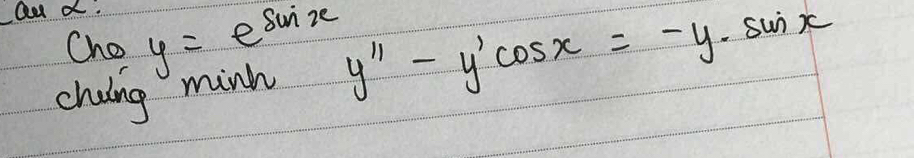 Câu 2:
Cho y = e^sin x
chứng minh y'' - y' cos x = -y. sin x